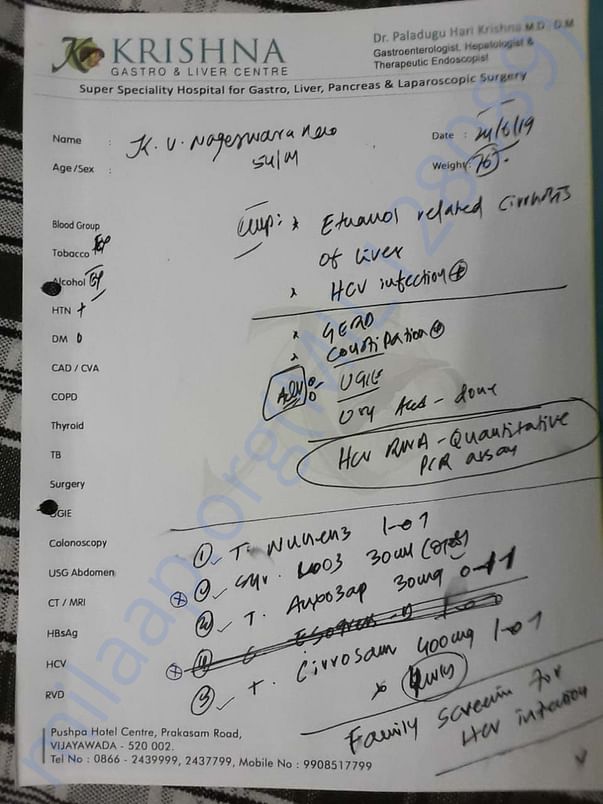 KRISHNA
GASTRO & LIVER CENTRE
Dr. Paladugu Hari Krishna M.D., D.M
Gastroenterologist, Hepatologist &
Therapeutic Endoscopist
Super Speciality Hospital for Gastro, Liver, Pancreas & Laparoscopic Surgery
Name : K. V. Nageswara Rao
Date :
Age/Sex : 54/M
Weight :
Blood Group
Tobacco
Alcohol
HTN +
DM
CAD / CVA
COPD
Thyroid
TB
Surgery
UGIE
Colonoscopy
USG Abdomen
CT / MRI
HBsAg
HCV
RVD
Imp: * Ethanol related Cirrhosis
of liver
* HCV infection +
* GERD
* Constipation +
Adv :- UGIE
USG Abd - done
HCV RNA - Quantitative
PCR assay
① T. 1-0-1
Syr. 30ml
T. 30mg
③ T. Cirrosam 400mg 1-0-1
Family screen for
HCV infection
Pushpa Hotel Centre, Prakasam Road,
VIJAYAWADA - 520 002.
Tel No : 0866 - 2439999, 2437799, Mobile No : 9908517799
milaap.org